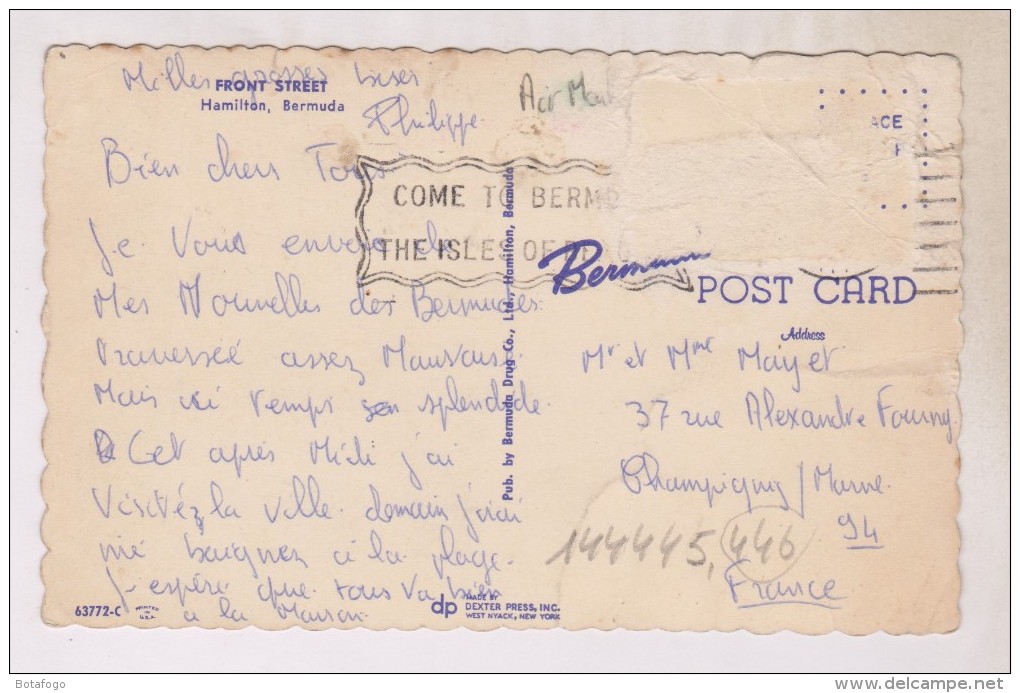 Milles grosses bises
FRONT STREET
Hamilton, Bermuda
Philippe.
Air Mail
ACE
Bien chers Tous
COME TO BERMU
THE ISLES OF
Je Vous envoie de
Mes Nouvelles des Bermudes.
Traversée assez Mauvaise.
Mais ici temps splendide.
Cet après Midi j'ai
Visitéz la Ville. demain j'irai
me baignez a la plage.
J'espére que tous va bien
a la Maison.
Pub. by Bermuda Drug Co., Ltd., Hamilton, Bermuda
POST CARD
Address
Mr et Mme Mayet
37 rue Alexandre Fourny
Champigny / Marne.
94
France
144445,446
63772-C
PRINTED IN U.S.A.
dp MADE BY
DEXTER PRESS, INC.
WEST NYACK, NEW YORK
Botafogo
www.delcampe.net